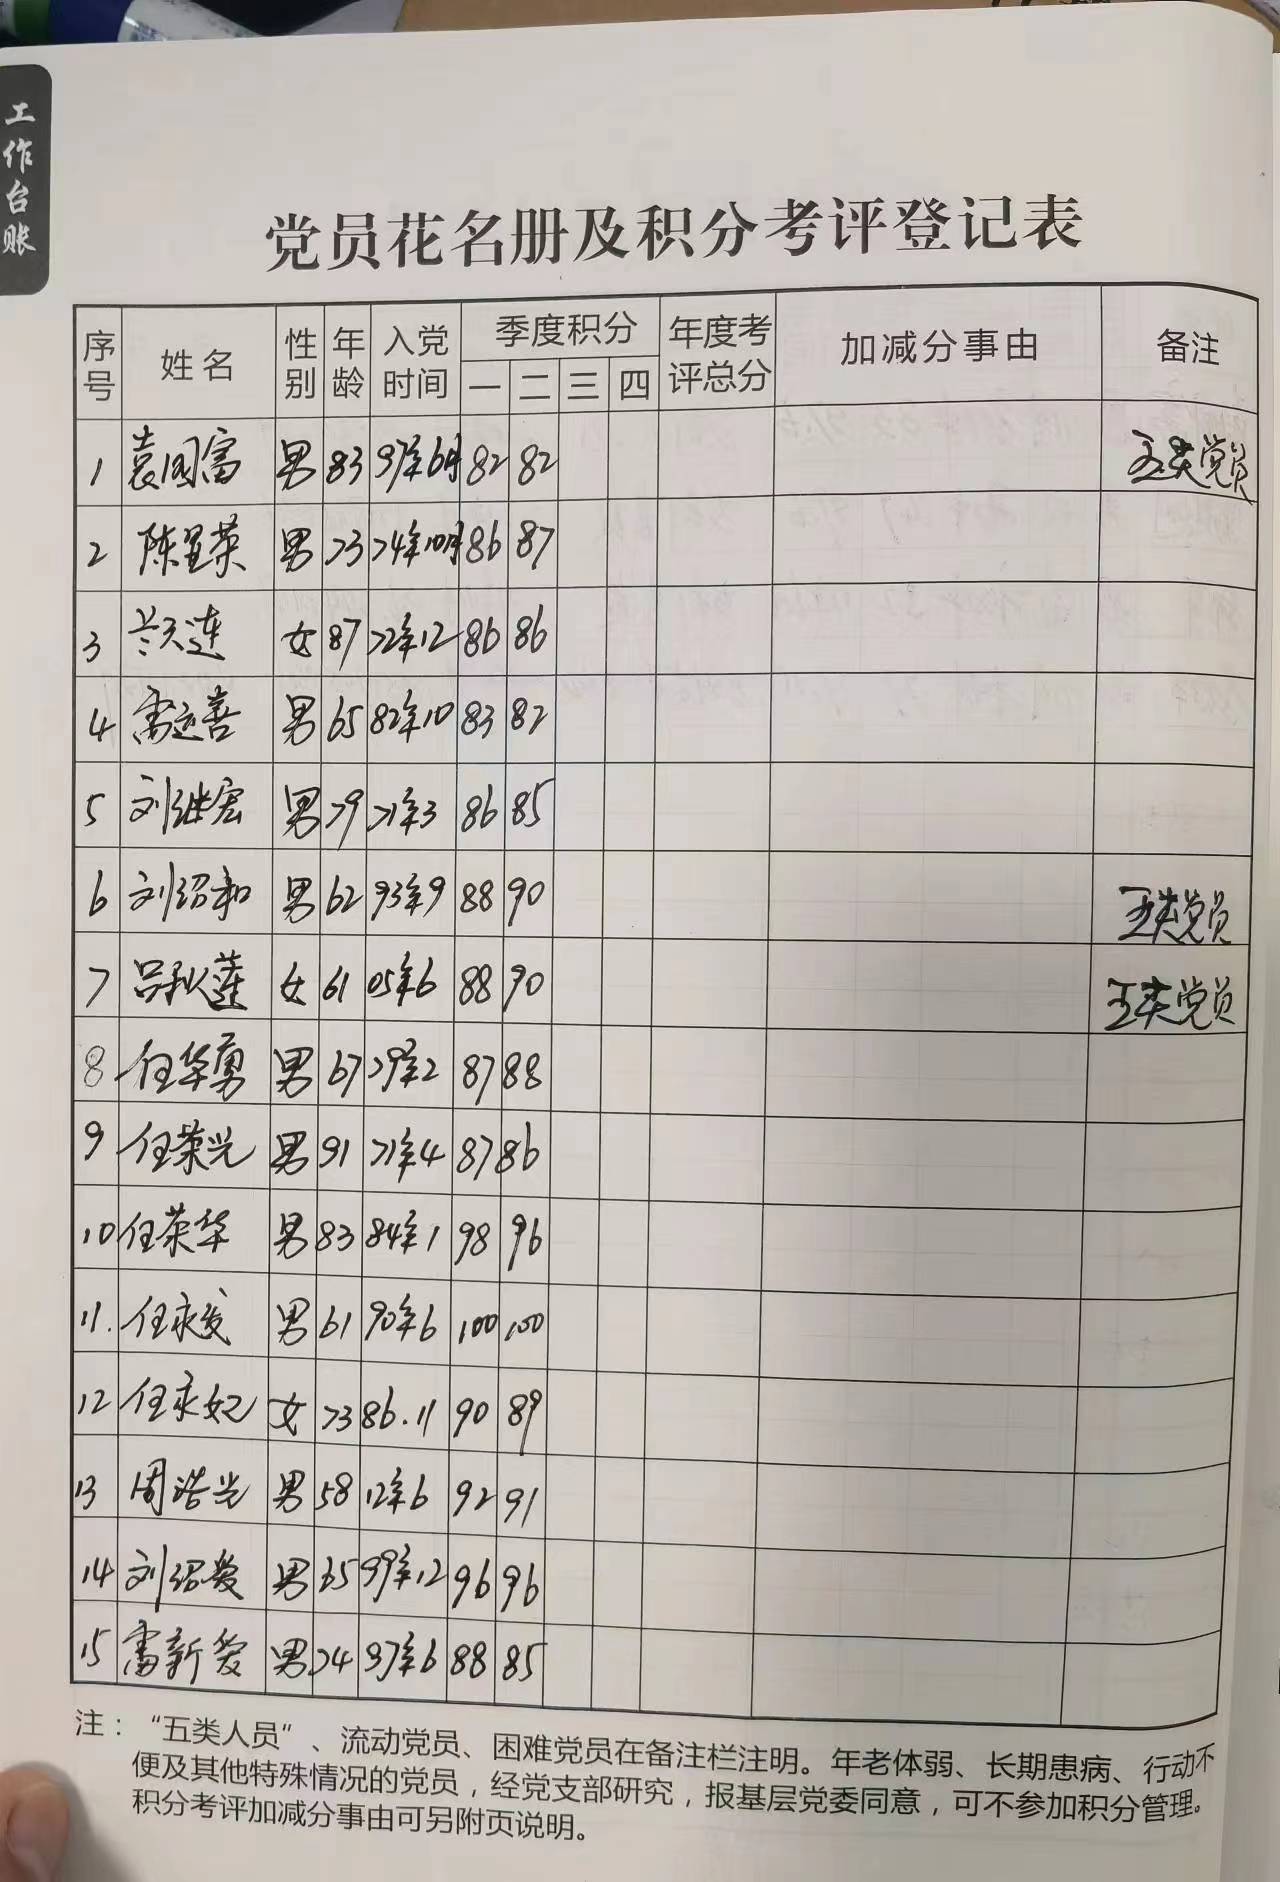 工作台账
党员花名册及积分考评登记表
序号 姓名 性别 年龄 入党时间 季度积分 一 二 三 四 年度考评总分 加减分事由 备注
1 袁国富 男 83 97年6月 82 82 五类党员
2 陈呈荣 男 73 74年10月 86 87
3 兰天连 女 87 72年12 86 86
4 雷运善 男 65 82年10 83 82
5 刘继宏 男 79 71年3 86 85
6 刘绍和 男 62 93年9 88 90 五类党员
7 吕秋莲 女 61 05年6 88 90 五类党员
8 任华勇 男 67 79年2 87 88
9 任荣光 男 91 71年4 87 86
10 任荣华 男 83 84年1 98 96
11. 任永发 男 61 90年6 100 100
12 任永妃 女 73 86.11 90 89
13 周浩光 男 58 12年6 92 91
14 刘绍发 男 65 99年12 96 96
15 雷新发 男 74 97年6 88 85
注：“五类人员”、流动党员、困难党员在备注栏注明。年老体弱、长期患病、行动不
便及其他特殊情况的党员，经党支部研究，报基层党委同意，可不参加积分管理。
积分考评加减分事由可另附页说明。